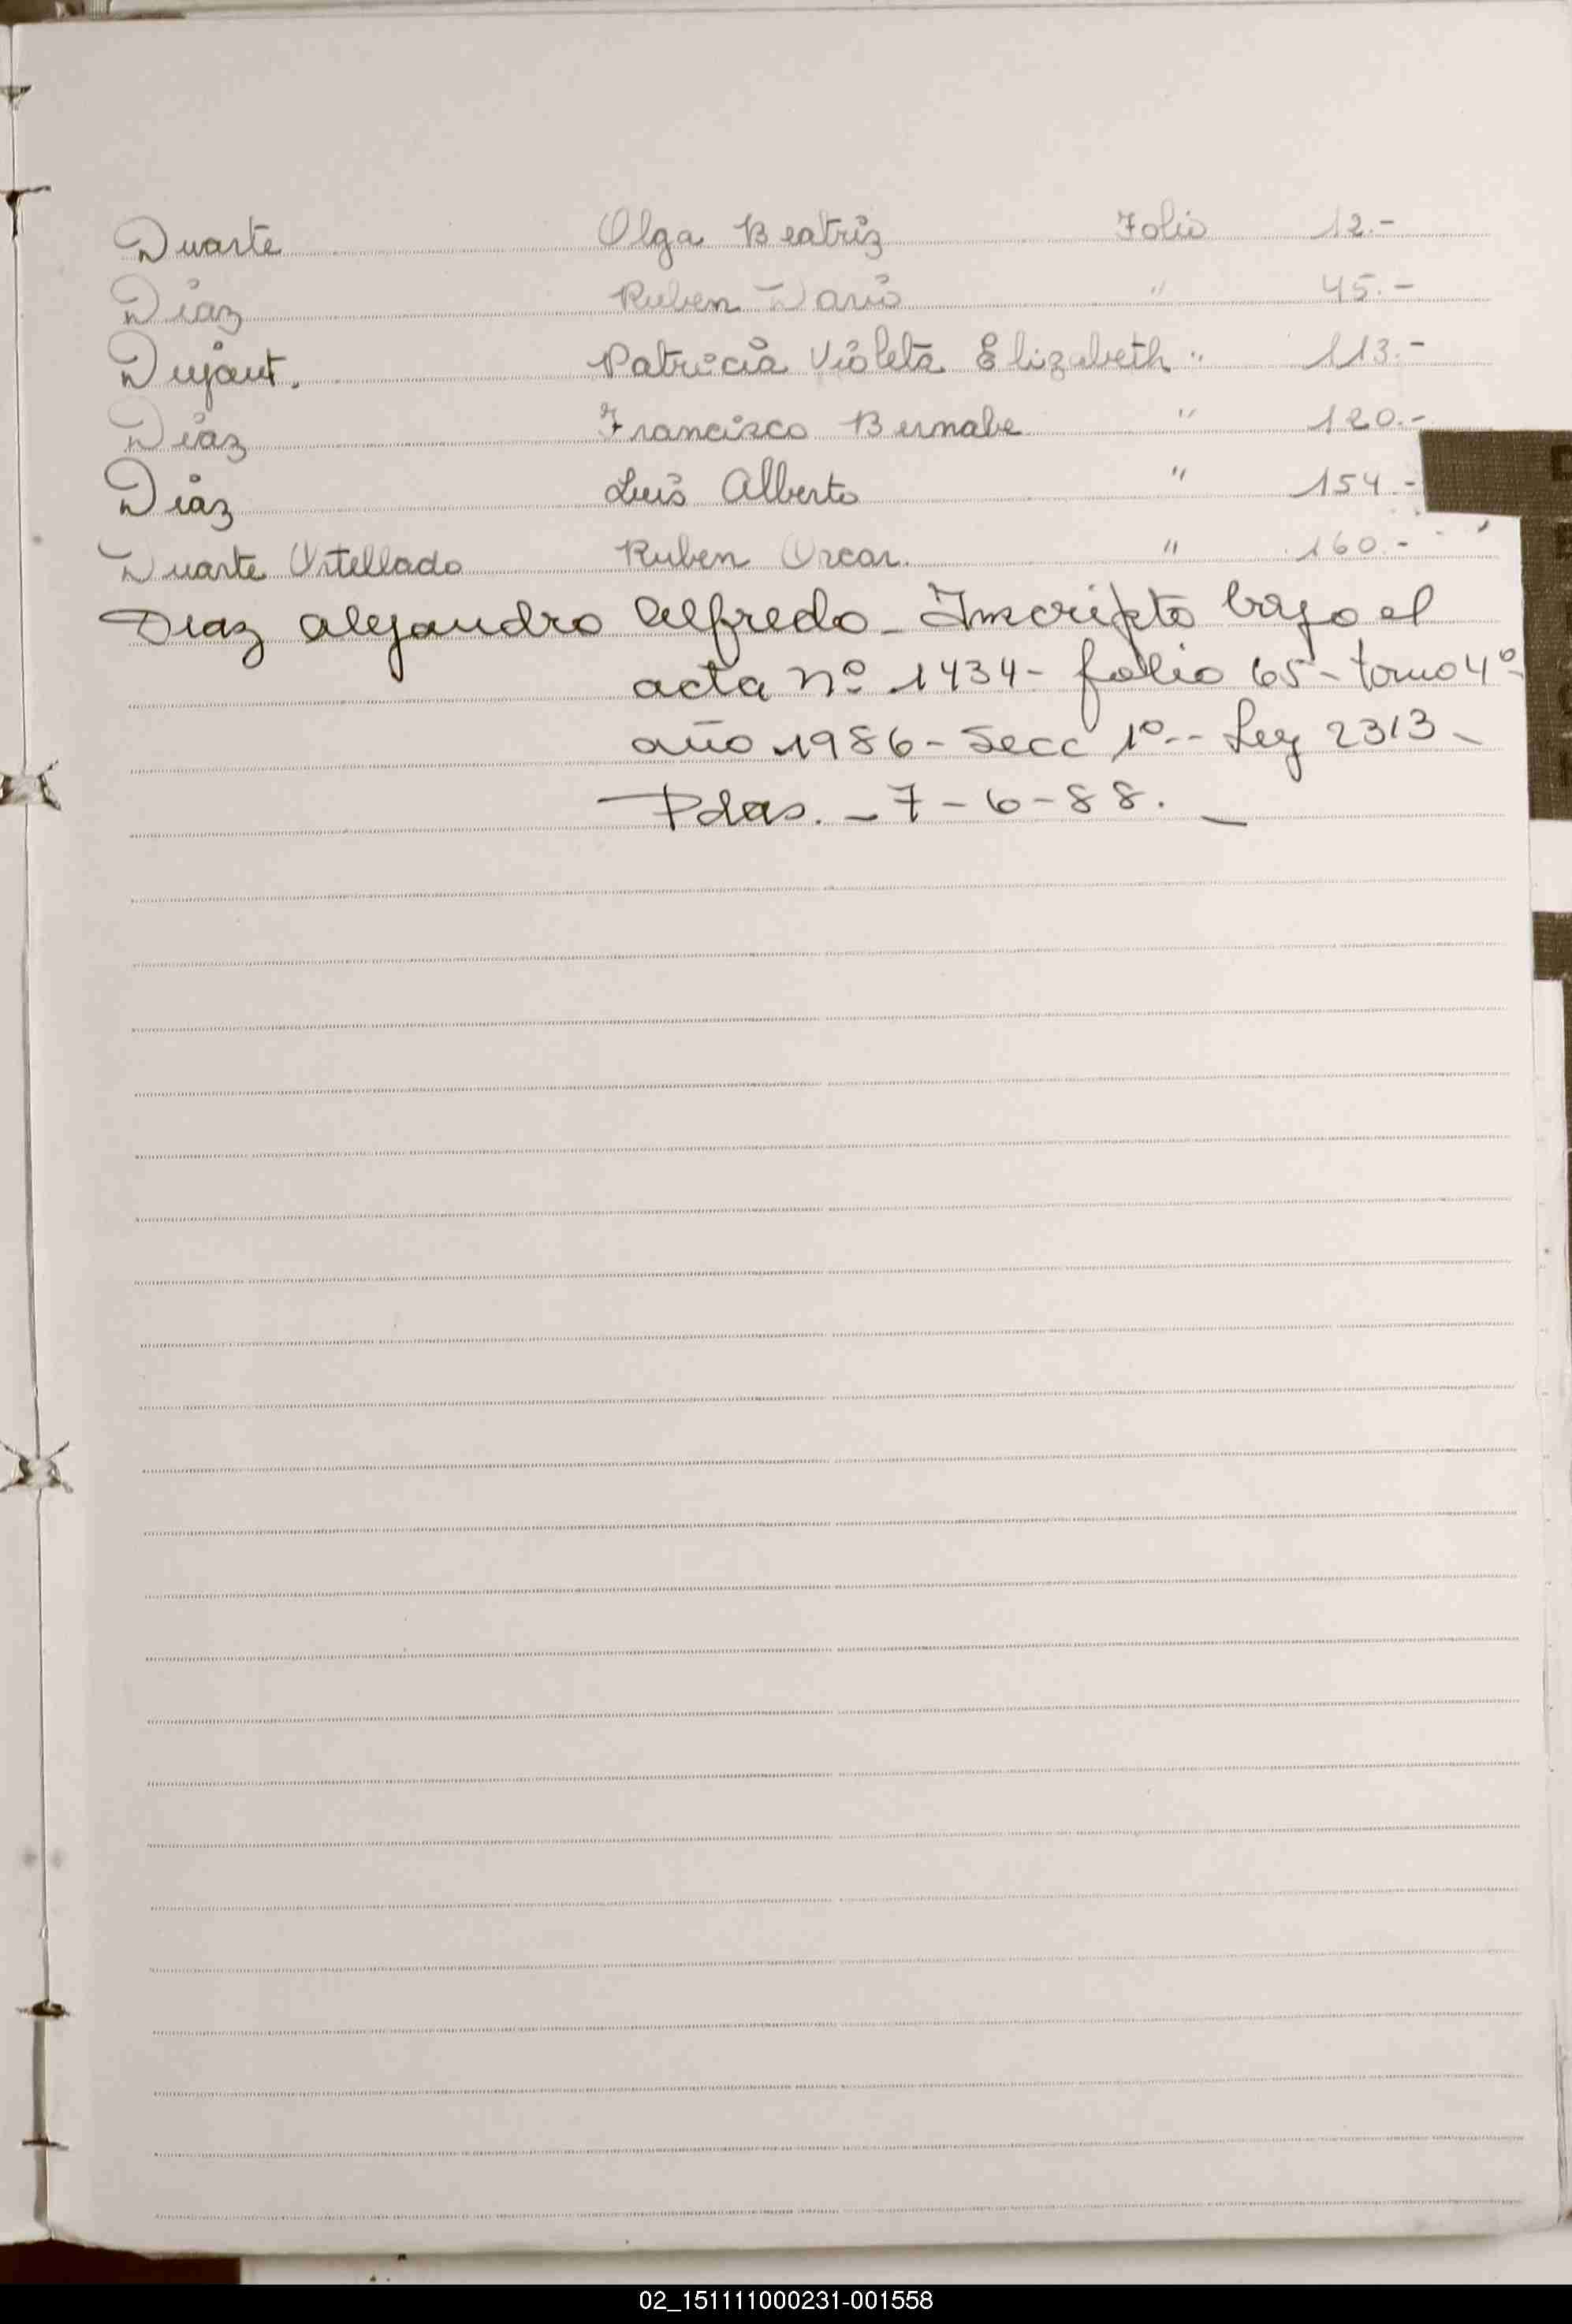 Duarte Olga Beatriz Folio 12.-
Diaz Ruben Dario " 45.-
Dujaut. Patricia Violeta Elizabeth " 113.-
Diaz Francisco Bernabe " 120.-
Diaz Luis Alberto " 154.-
Duarte Ortellado Ruben Oscar. " 160.-
Diaz Alejandro Alfredo - Inscripto bajo el
acta nº 1434 - folio 65 - tomo 4º
año 1986 - Secc 1º - Ley 2313 -
Pdas. - 7-6-88. -
02_151111000231-001558